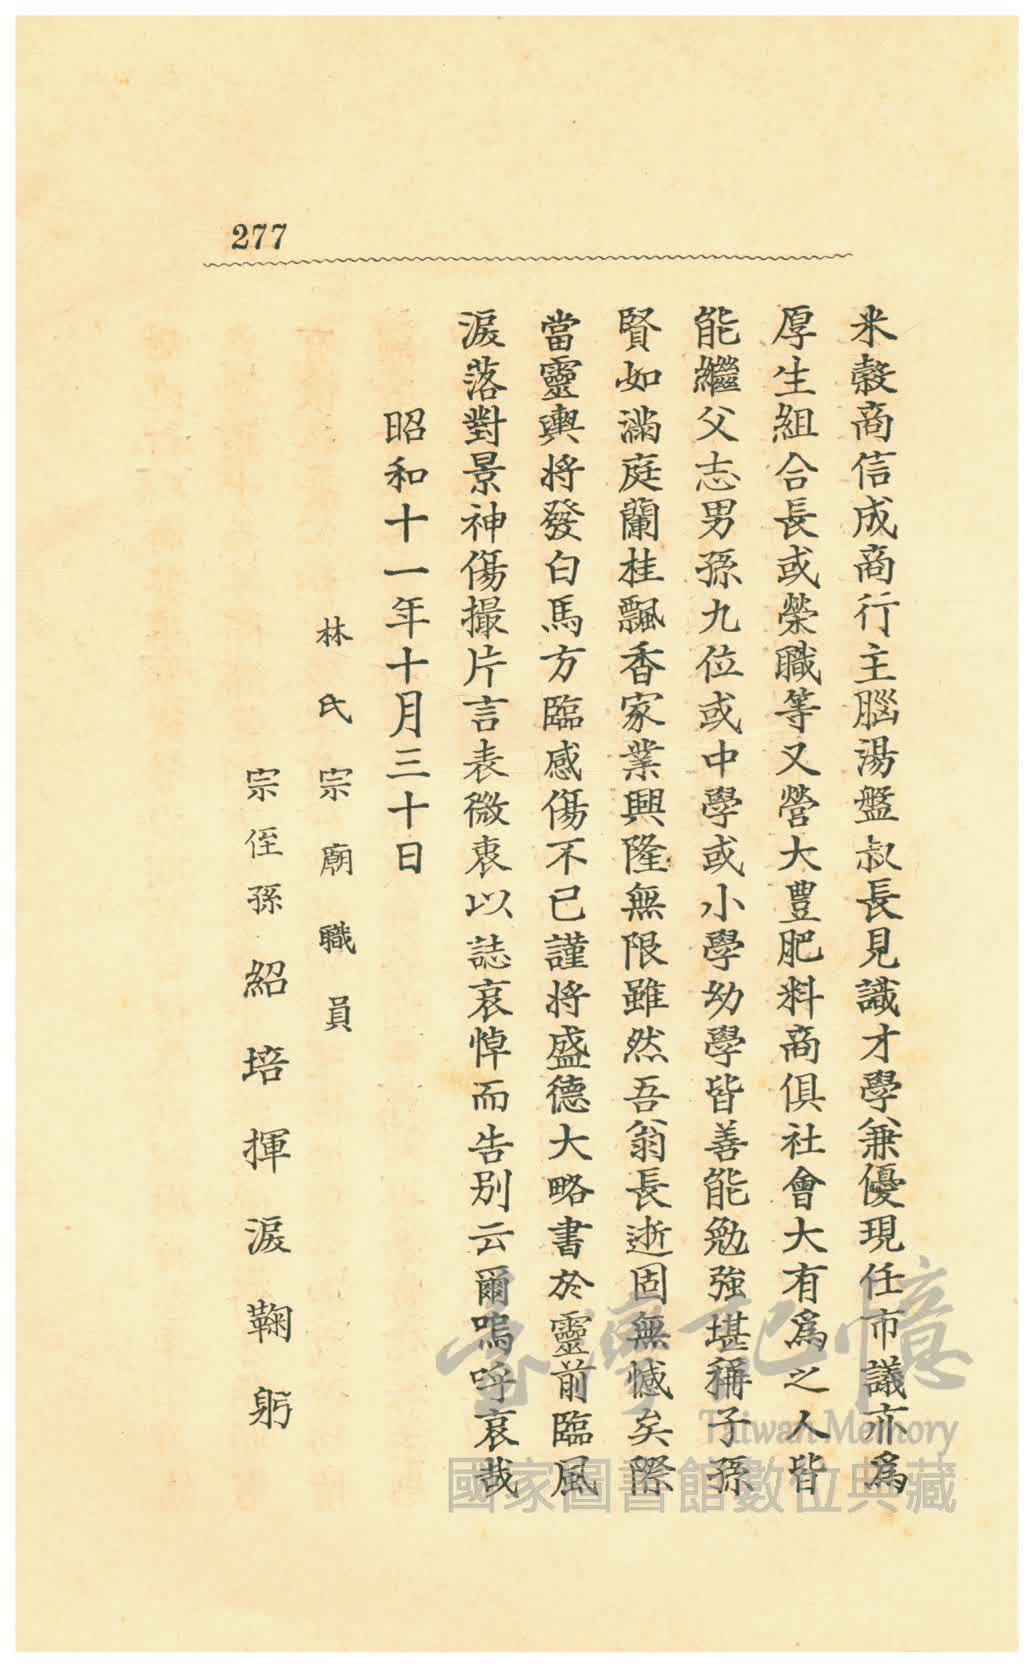 277
米穀商信成商行主腦湯盤叔長見識才學兼優現任市議亦爲
厚生組合長或榮職等又營大豊肥料商俱社會大有爲之人皆
能繼父志男孫九位或中學或小學幼學皆善能勉強堪稱子孫
賢如滿庭蘭桂飄香家業興隆無限雖然吾翁長逝固無憾矣際
當靈輿將發白馬方臨感傷不已謹将盛德大略書於靈前臨風
淚落對景神傷撮片言表微衷以誌哀悼而告別云爾嗚呼哀哉
昭和十一年十月三十日
林氏宗廟職員
宗侄孫紹培揮淚鞠躬
臺灣記憶
Taiwan Memory
國家圖書館數位典藏